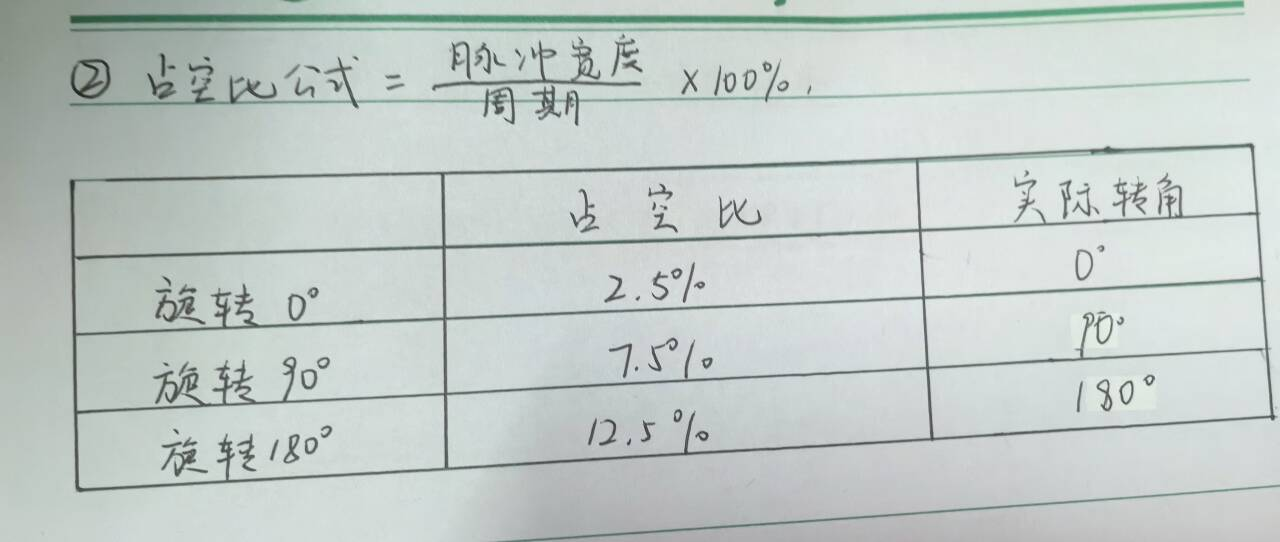 ② 占空比公式 = 脉冲宽度/周期 ×100%.
占空比 实际转角
旋转 0° 2.5% 0°
旋转 90° 7.5% 90°
旋转180° 12.5% 180°